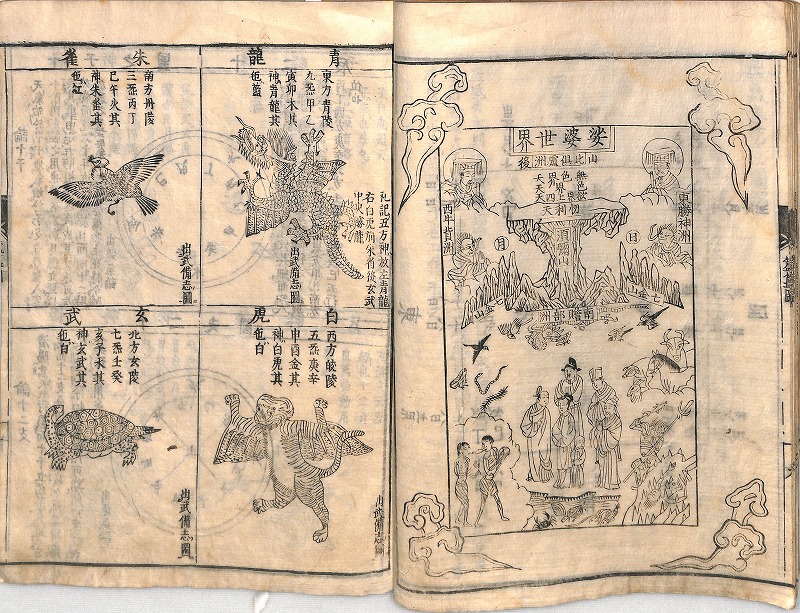 娑婆世界
忉利天
須彌山
東勝神洲
西牛貨洲
日
月
七金山
南贍部洲
青龍
東方青陵
九炁甲乙
寅卯木其
神青龍其
色藍
右白虎前朱雀後玄武
出武備志圖
朱雀
南方丹陵
三炁丙丁
巳午火其
神朱雀其
色紅
出武備志圖
白虎
西方皎陵
五炁庚辛
申酉金其
神白虎其
色白
出武備志圖
玄武
北方玄陵
七炁壬癸
亥子水其
神玄武其
色白
出武備志圖